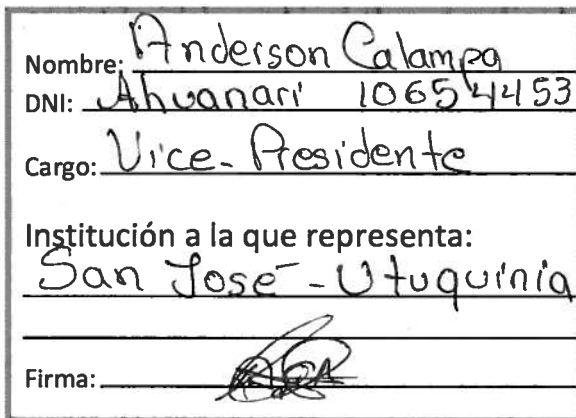 Nombre: Anderson Calampa
DNI: Ahuanari 10654453
Cargo: Vice-Presidente
Institución a la que representa:
San José - Utuquinia
Firma: